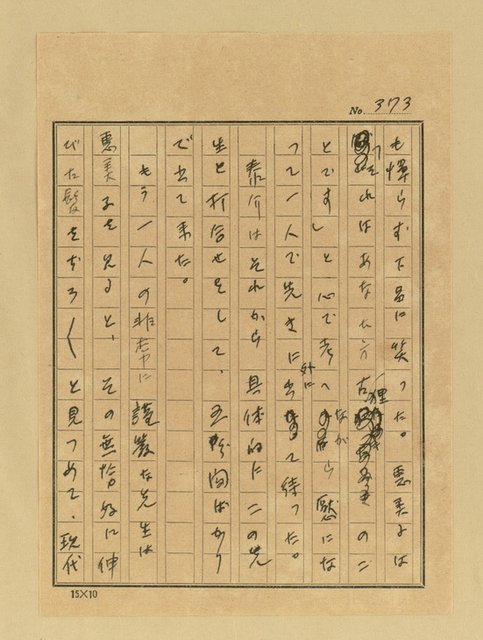 No. 373
も憚らず下品に笑った。恵美子は
「それはあなた方古狸のこ
とです」と心で考へながら厭にな
って一人で先きに外に出て待った。
泰介はそれから具体的に二の先
生と打合せをして、五分間ばかり
で出て来た。
もう一人の非常に謹厳な先生は
恵美子を見ると、その無恰好に伸
びた髪をぢろ〱と見つめて、現代
15×10